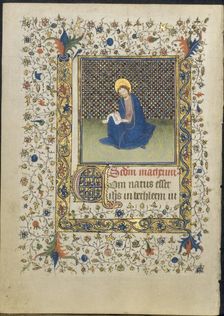 Sedm matheum
Cum natus esset
ihs in bethleem iu